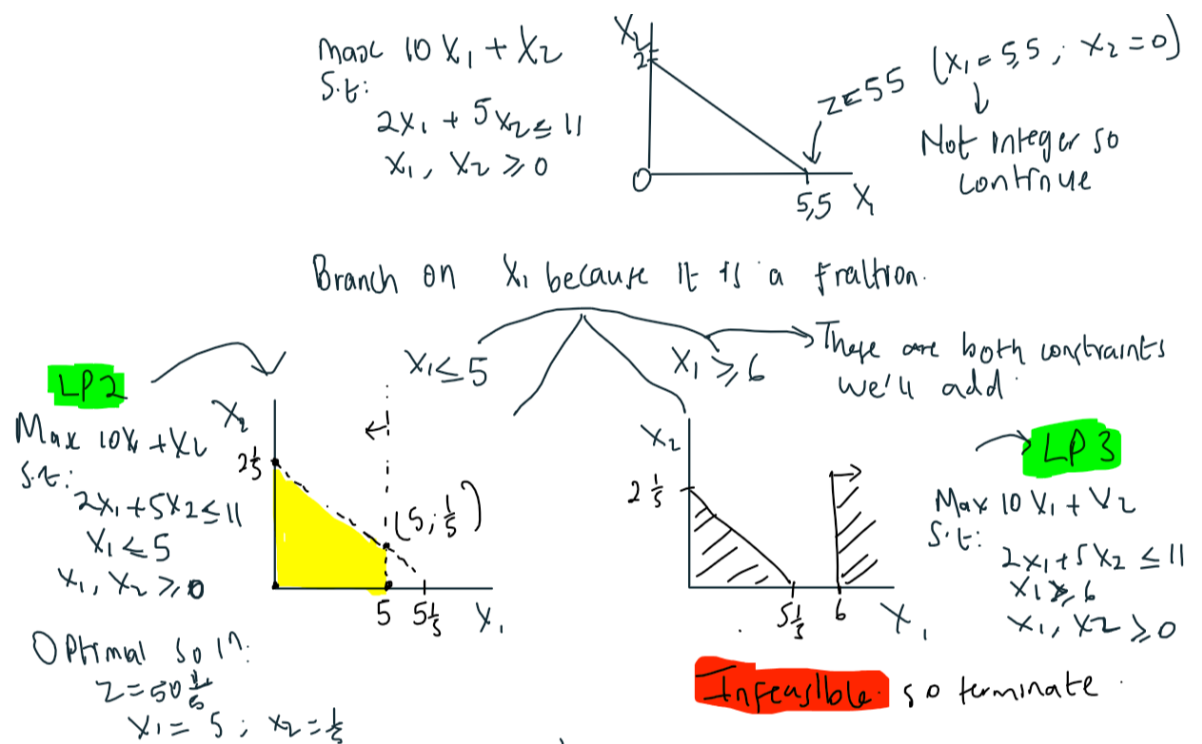 max 10 X₁ + X₂
S.t:
2x₁ + 5x₂ ≤ 11
x₁, x₂ ≥ 0
X₂
2
0
5,5 X₁
Z=55 (X₁ = 5,5 ; X₂ = 0)
Not integer so
continue
Branch on X₁ because it is a fraction.
X₁ ≤ 5
X₁ ≥ 6
These are both constraints
we'll add.
LP2
Max 10X₁ + X₂
S.t:
2x₁ + 5x₂ ≤ 11
X₁ ≤ 5
X₁, X₂ ≥ 0
X₂
2 1/5
(5; 1/5)
5 5 1/5 X₁
Optimal soln:
Z = 50 1/5
X₁ = 5 ; X₂ = 1/5
X₂
2 1/5
5 1/5 6 X₁
LP3
Max 10 X₁ + X₂
S.t:
2x₁ + 5x₂ ≤ 11
X₁ ≥ 6
X₁, X₂ ≥ 0
Infeasible so terminate.